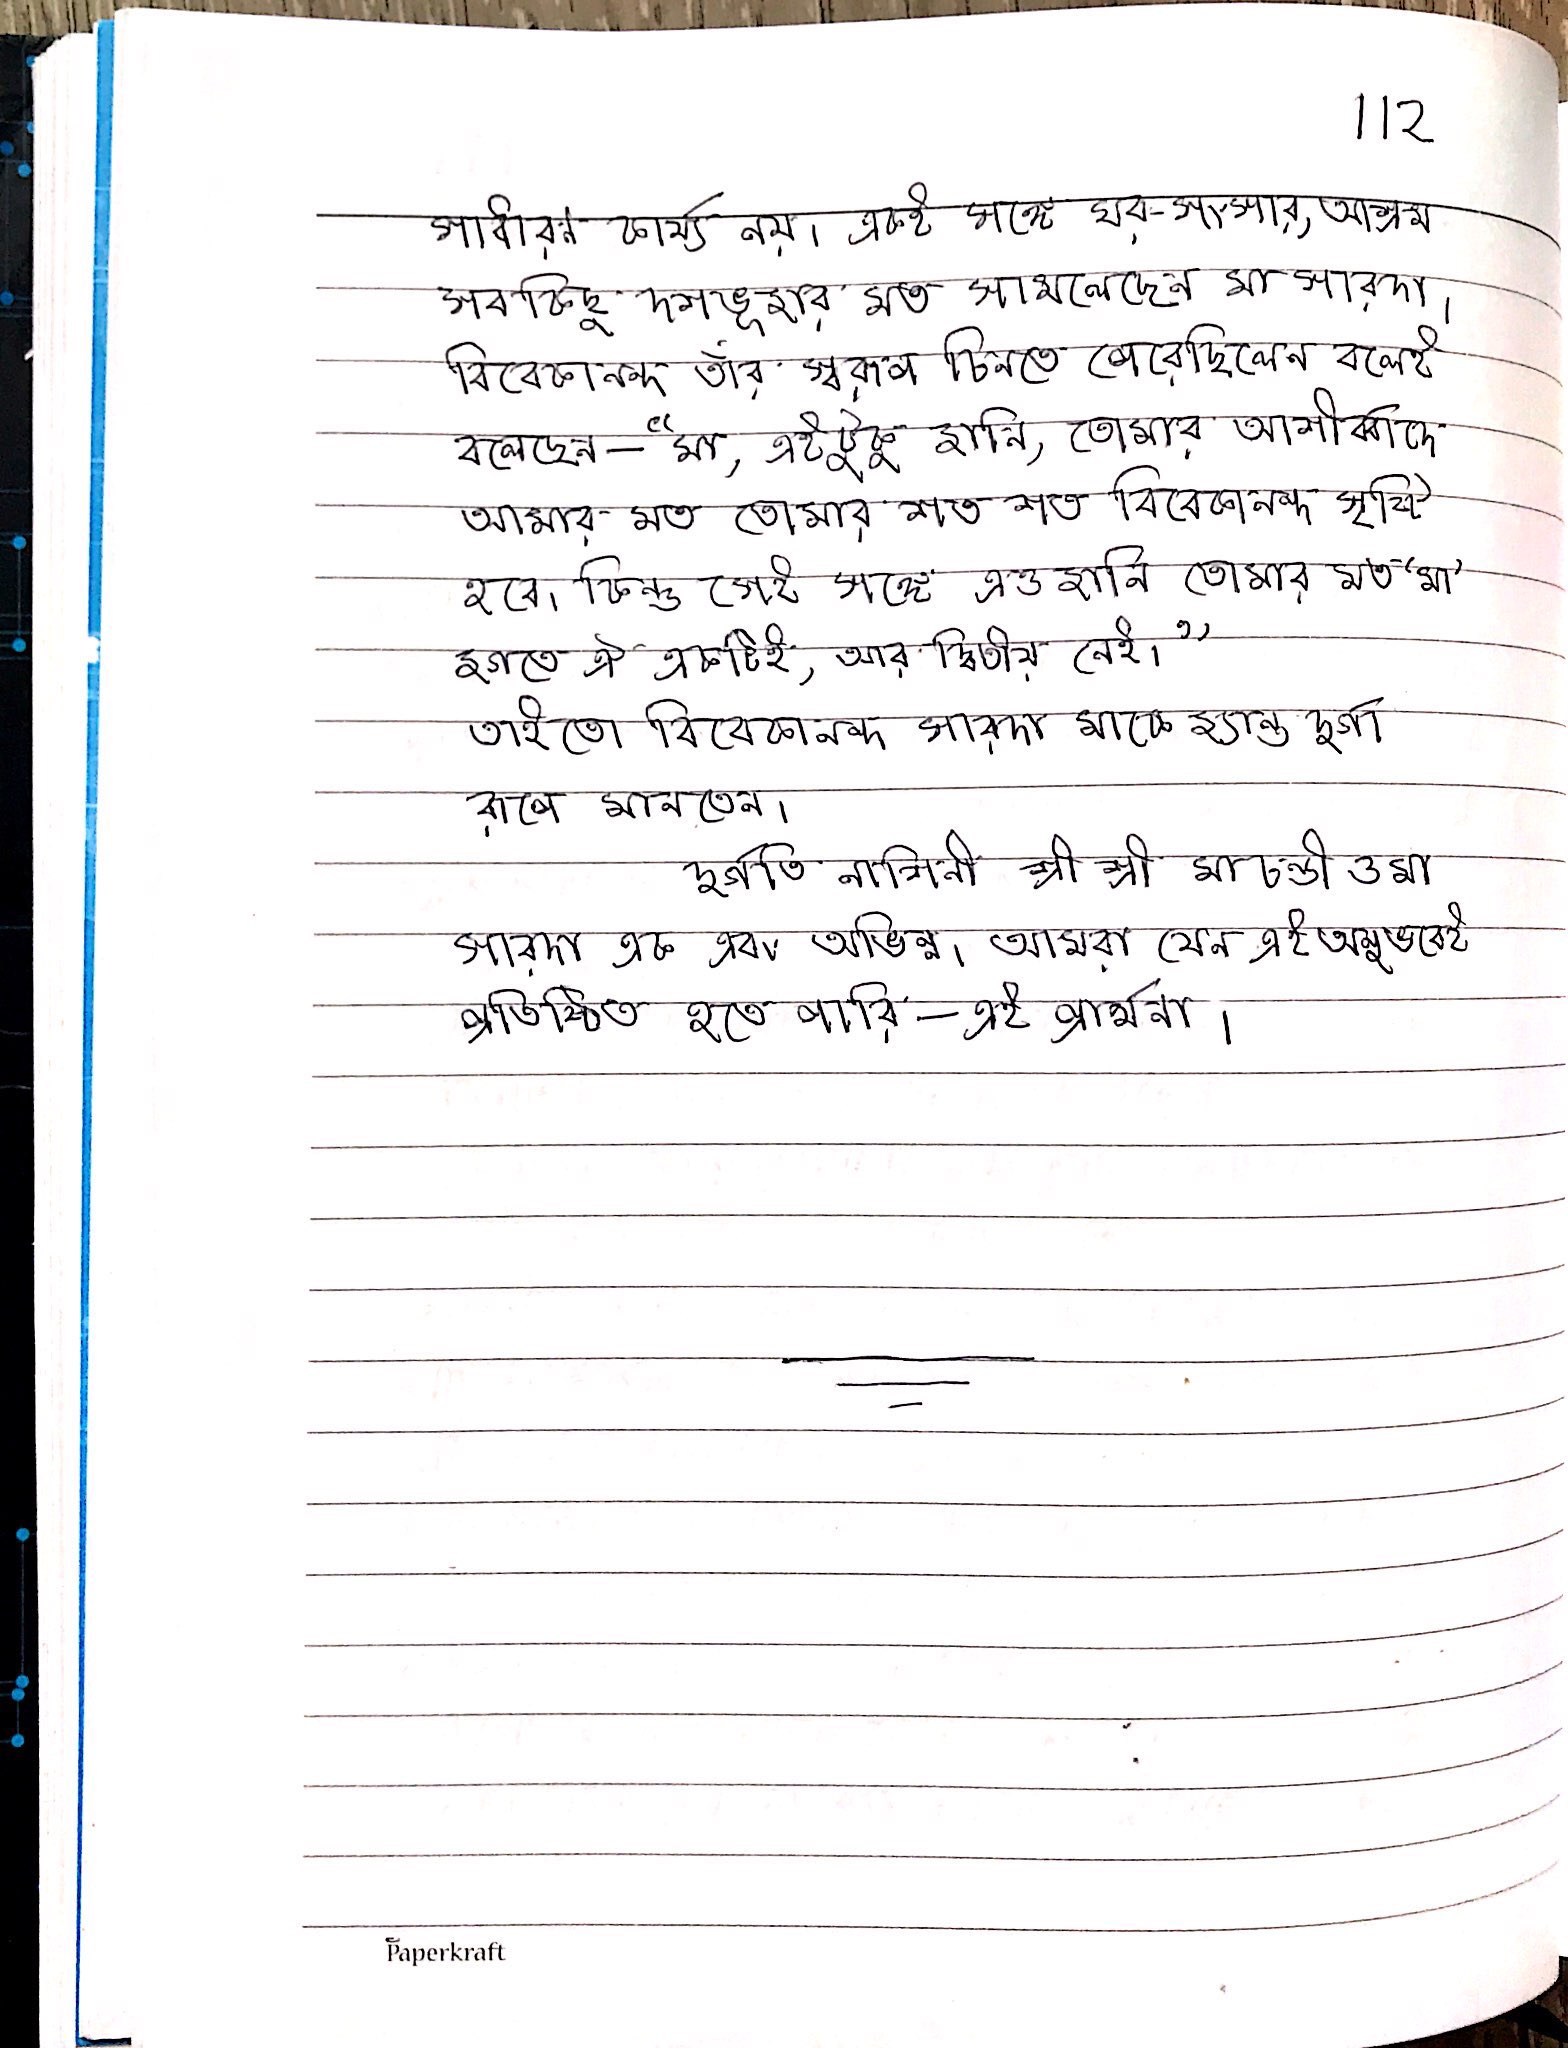 112
সাধারণ কার্য্য নয়। একই সঙ্গে ঘর-সংসার, আশ্রম
সবকিছু দশভূজার মত সামলেছেন মা সারদা।
বিবেকানন্দ তাঁর স্বরূপ চিনতে পেরেছিলেন বলেই
বলেছেন — "মা, এইটুকু জানি, তোমার আশীর্ব্বাদে
আমার মত তোমার শত শত বিবেকানন্দ সৃষ্টি
হবে। কিন্তু সেই সঙ্গে এও জানি তোমার মত 'মা'
জগতে ঐ একটিই, আর দ্বিতীয় নেই।"
তাইতো বিবেকানন্দ সারদা মাকে জ্যান্ত দুর্গা
রূপে মানতেন।
দুর্গতি নাশিনী শ্রী শ্রী মা চণ্ডী ও মা
সারদা এক এবং অভিন্ন। আমরা যেন এই অনুভবেই
প্রতিষ্ঠিত হতে পারি — এই প্রার্থনা।
Paperkraft